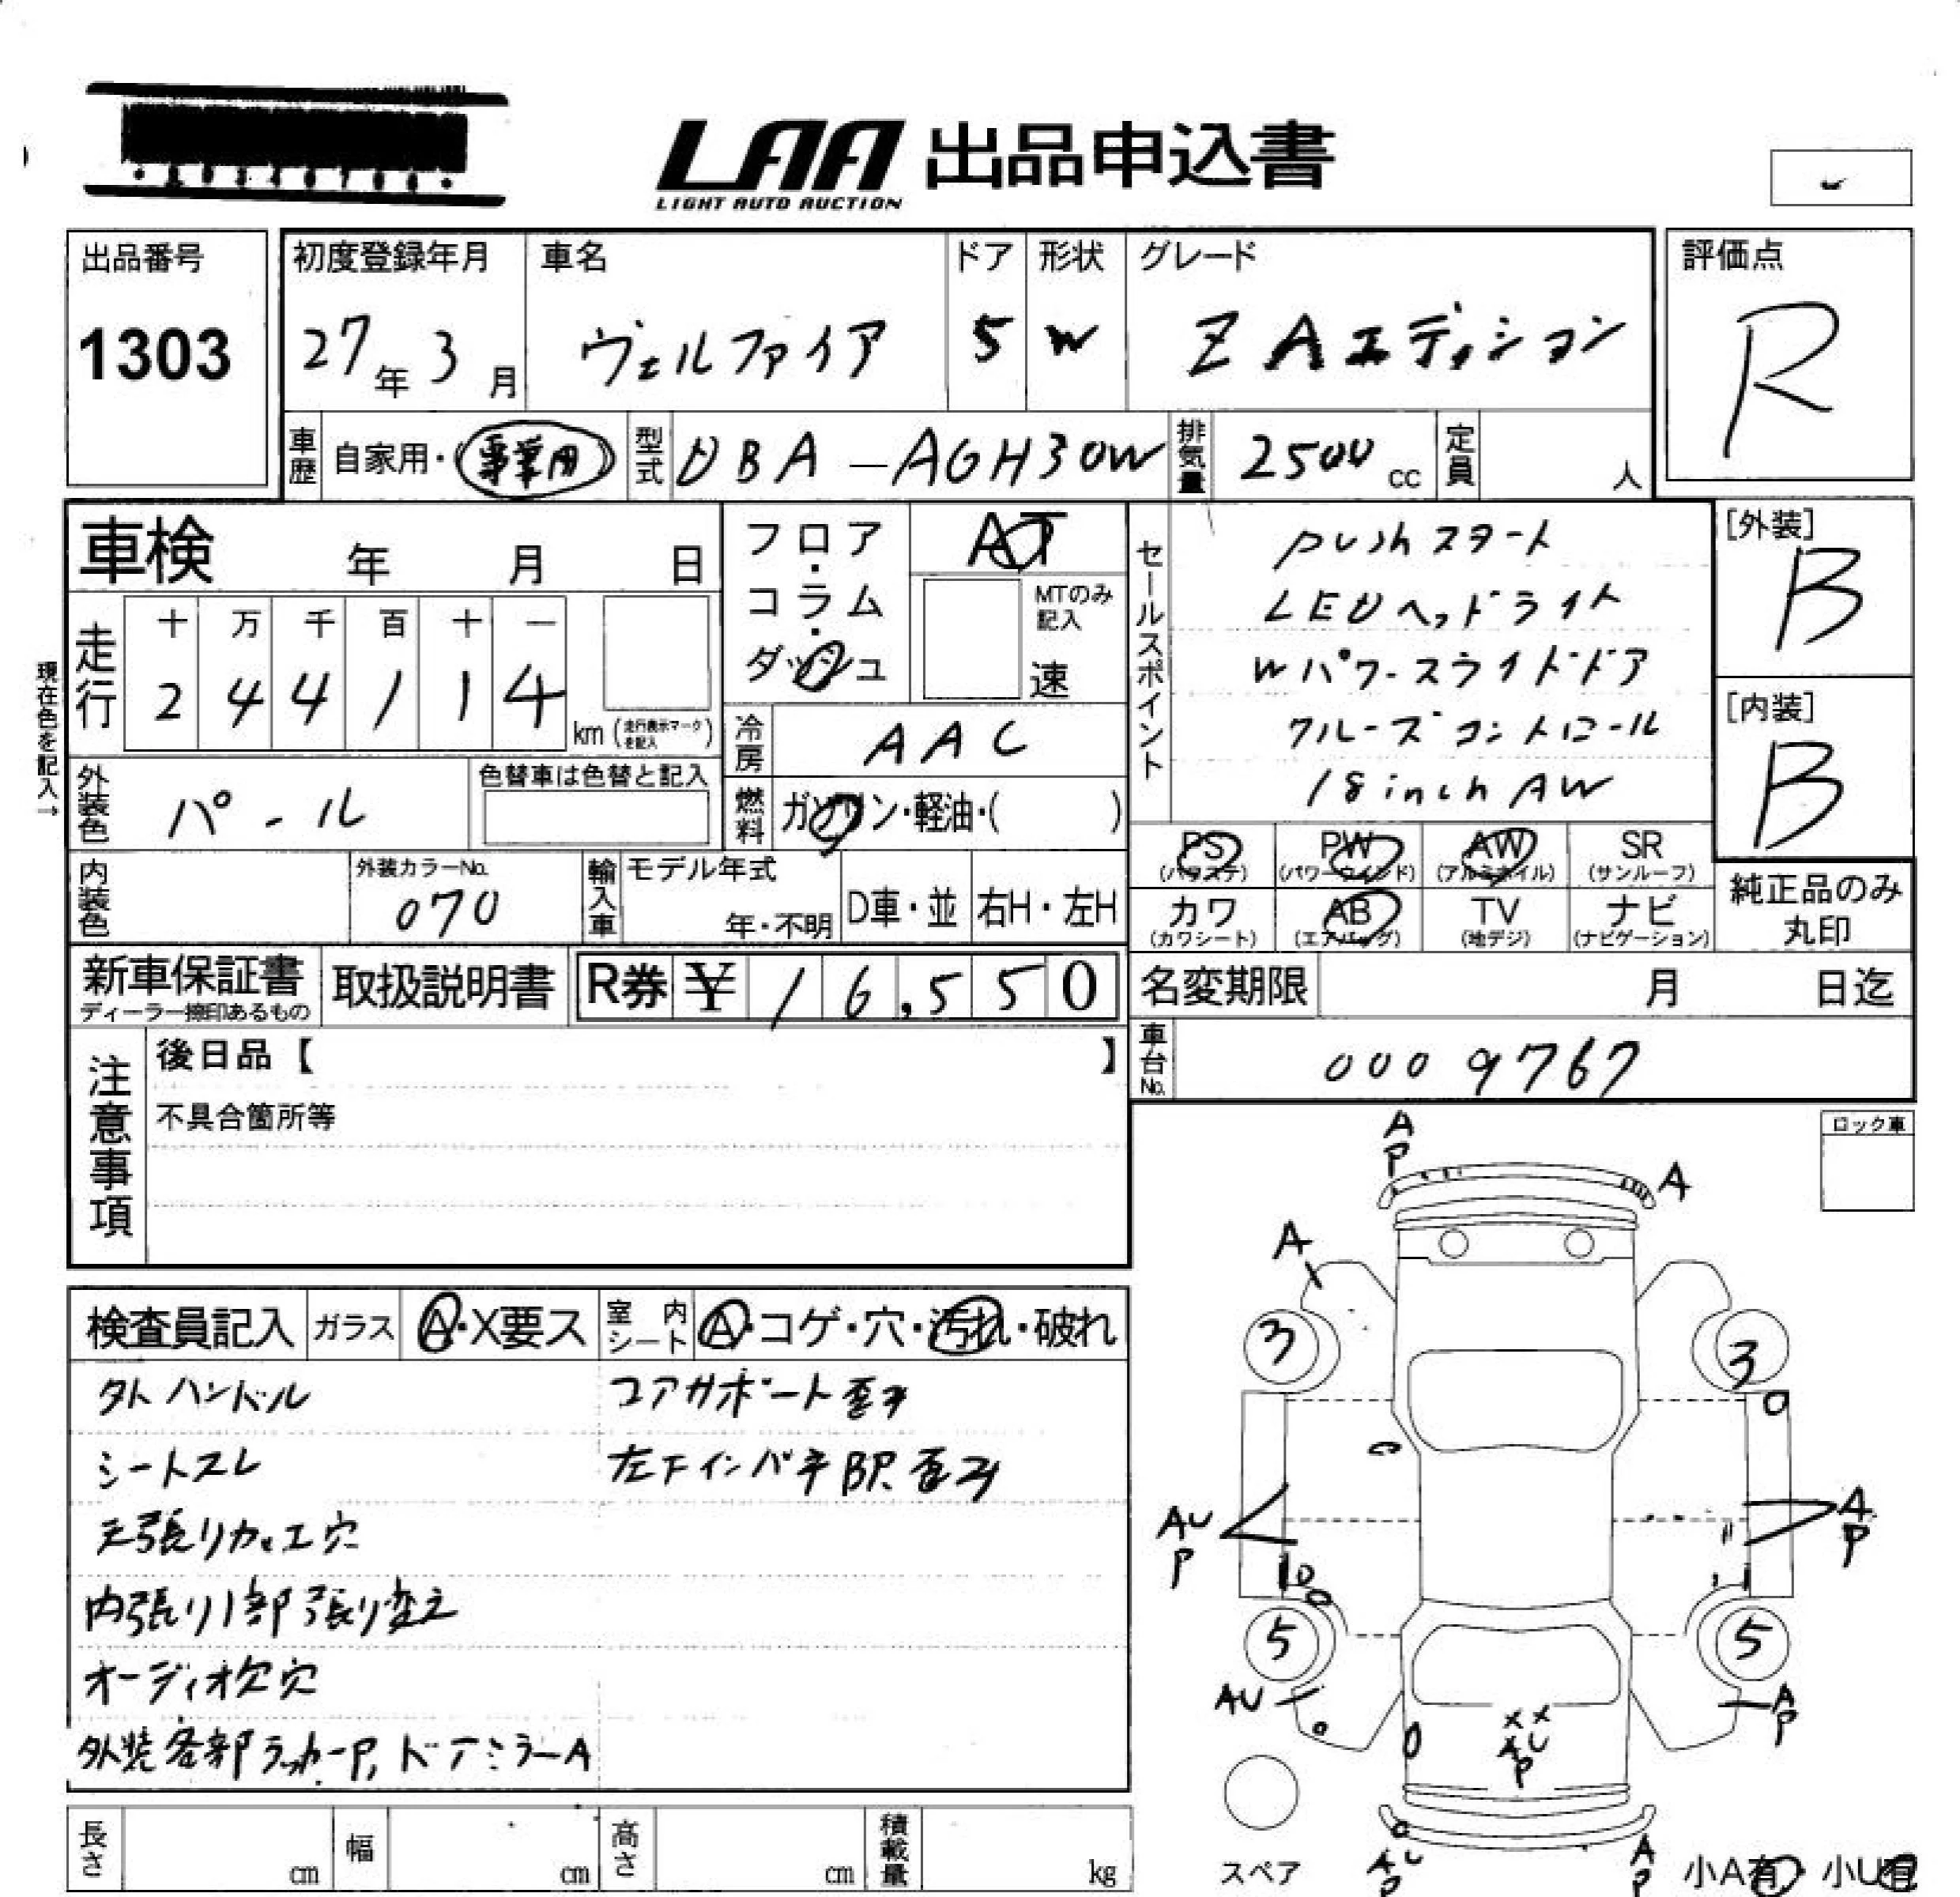 LAA 出品申込書
LIGHT AUTO AUCTION
出品番号
1303
初度登録年月
27年3月
車名
ヴェルファイア
ドア
5
形状
W
グレード
Z Aエディション
評価点
R
車歴 自家用・(事業用)
型式 DBA-AGH30W
排気量 2500cc
定員 人
車検 年 月 日
フロア・コラム・ダッシュ
AT
MTのみ記入
速
現在色を記入→
走行
十 万 千 百 十 一
2 4 4 1 1 4
km (走行表示マークを記入)
冷房 AAC
外装色 パール
色替車は色替と記入
燃料 ガソリン・軽油・( )
内装色
外装カラーNo.
070
輸入車 モデル年式
年・不明
D車・並
右H・左H
セールスポイント
pushスタート
LEDヘッドライト
Wパワースライドドア
クルーズコントロール
18inch AW
[外装]
B
[内装]
B
PS (パワステ)
PW (パワーウインド)
AW (アルミホイル)
SR (サンルーフ)
カワ (カワシート)
AB (エアバッグ)
TV (地デジ)
ナビ (ナビゲーション)
純正品のみ丸印
新車保証書
ディーラー捺印あるもの
取扱説明書
R券 ¥16,550
名変期限 月 日迄
車台No. 0009767
注意事項
後日品【 】
不具合箇所等
ロック車
検査員記入
ガラス A・X要ス
室内シート A・コゲ・穴・汚れ・破れ
外ハンドル
シートスレ
天張りカッエ穴
内張り1部張り変え
オーディオ欠穴
外装各部ラッカーP,ドアミラーA
コアサポート歪み
左下インパネBP.歪み
A
P
A
A
3
3
AU
P
A
P
5
5
AU
A
P
XX
AU
P
AU
P
A
P
スペア
小A有・小U有
長さ cm
幅 cm
高さ cm
積載量 kg